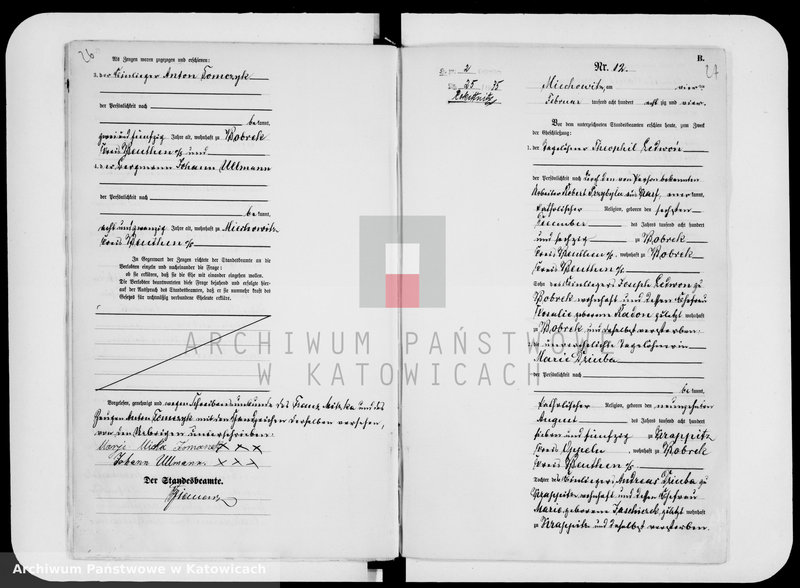 26
Als Zeugen waren zugezogen und erschienen:
3. der Einlieger Anton Tomczyk
der Persönlichkeit nach
bekannt,
zweiundfünfzig Jahre alt, wohnhaft zu Bobrek
Kreis Beuthen o/s und
4. der Bergmann Johann Ullmann
der Persönlichkeit nach
bekannt,
achtundzwanzig Jahre alt, wohnhaft zu Miechowitz
Kreis Beuthen o/s
In Gegenwart der Zeugen richtete der Standesbeamte an die
Verlobten einzeln und nacheinander die Frage:
ob sie erklären, daß sie die Ehe mit einander eingehen wollen.
Die Verlobten beantworteten diese Frage bejahend und erfolgte hier-
auf der Ausspruch des Standesbeamten, daß er sie nunmehr kraft des
Gesetzes für rechtmäßig verbundene Eheleute erkläre.
Vorgelesen, genehmigt und wegen Schreibensunkunde des Franz und des
Zeugen Anton Tomczyk mit den Handzeichen derselben versehen,
von den Uebrigen unterschrieben:
+ + +
Johann Ullmann + + +
Der Standesbeamte.
B.
27
Nr. 12.
2
25 75
Rokittnitz
Miechowitz, am vier ten
Februar tausend acht hundert acht zig und vier.
Vor dem unterzeichneten Standesbeamten erschien heute, zum Zweck
der Eheschließung:
1. der Tagelöhner Theophil Redwoń
der Persönlichkeit nach durch den von Person bekannten
Arbeiter Robert Przybyla aus Karf, anerkannt,
katholischer Religion, geboren den sechsten
Dezember des Jahres tausend acht hundert
und sechzig zu Bobrek
Kreis Beuthen o/s, wohnhaft zu Bobrek
Kreis Beuthen o/s
Sohn des Einliegers Joseph Redwoń zu
Bobrek wohnhaft und dessen Ehefrau
Rosalie geborene zuletzt wohnhaft
zu Bobrek und daselbst verstorben.
2. die unverehelichte Tagelöhnerin
Marie Dziuba
der Persönlichkeit nach
bekannt,
katholischer Religion, geboren den neunzehnten
August des Jahres tausend acht hundert
sieben und fünfzig zu Krappitz
Kreis Oppeln, wohnhaft zu Bobrek
Kreis Beuthen o/s.
Tochter des Einliegers Andreas Dziuba zu
Krappitz wohnhaft und dessen Ehefrau
Marie geborene zuletzt wohnhaft
zu Krappitz und daselbst verstorben.
ARCHIWUM PAŃSTWOWE
W KATOWICACH
Archiwum Państwowe w Katowicach